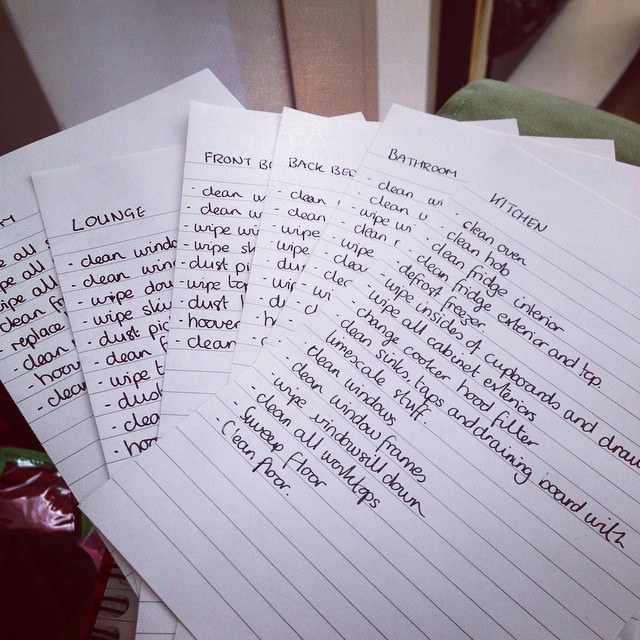 ipe all
ipe all
clean f
- replace
- clean
- hoov
- clea
LOUNGE
- clean windo
- clean win
- wipe dou
- wipe skir
- dust pic
- clean f
- wipe t
- dust
- clea
- hoo
FRONT BE
- clean w
- clean w
- wipe wi
- wipe sk
- dust pi
- wipe to
- dust l
- hoover
- clean
BACK BED
- clean
- clean
- wipe
- wipe
- dus
- wi
BATHROOM
- clean wi
- clean w
- wipe wi
- clean
- wipe
- clea
KITCHEN
- clean oven
- clean hob
- clean fridge interior
- clean fridge exterior and top
- defrost freezer
- wipe insides of cupboards and draw
- wipe all cabinet exteriors
- change cooker hood filter
- clean sinks, taps and draining board with
limescale stuff.
- clean windows
- clean window frames
- wipe windowsill down
- clean all worktops
- Sweep floor
- Clean floor.